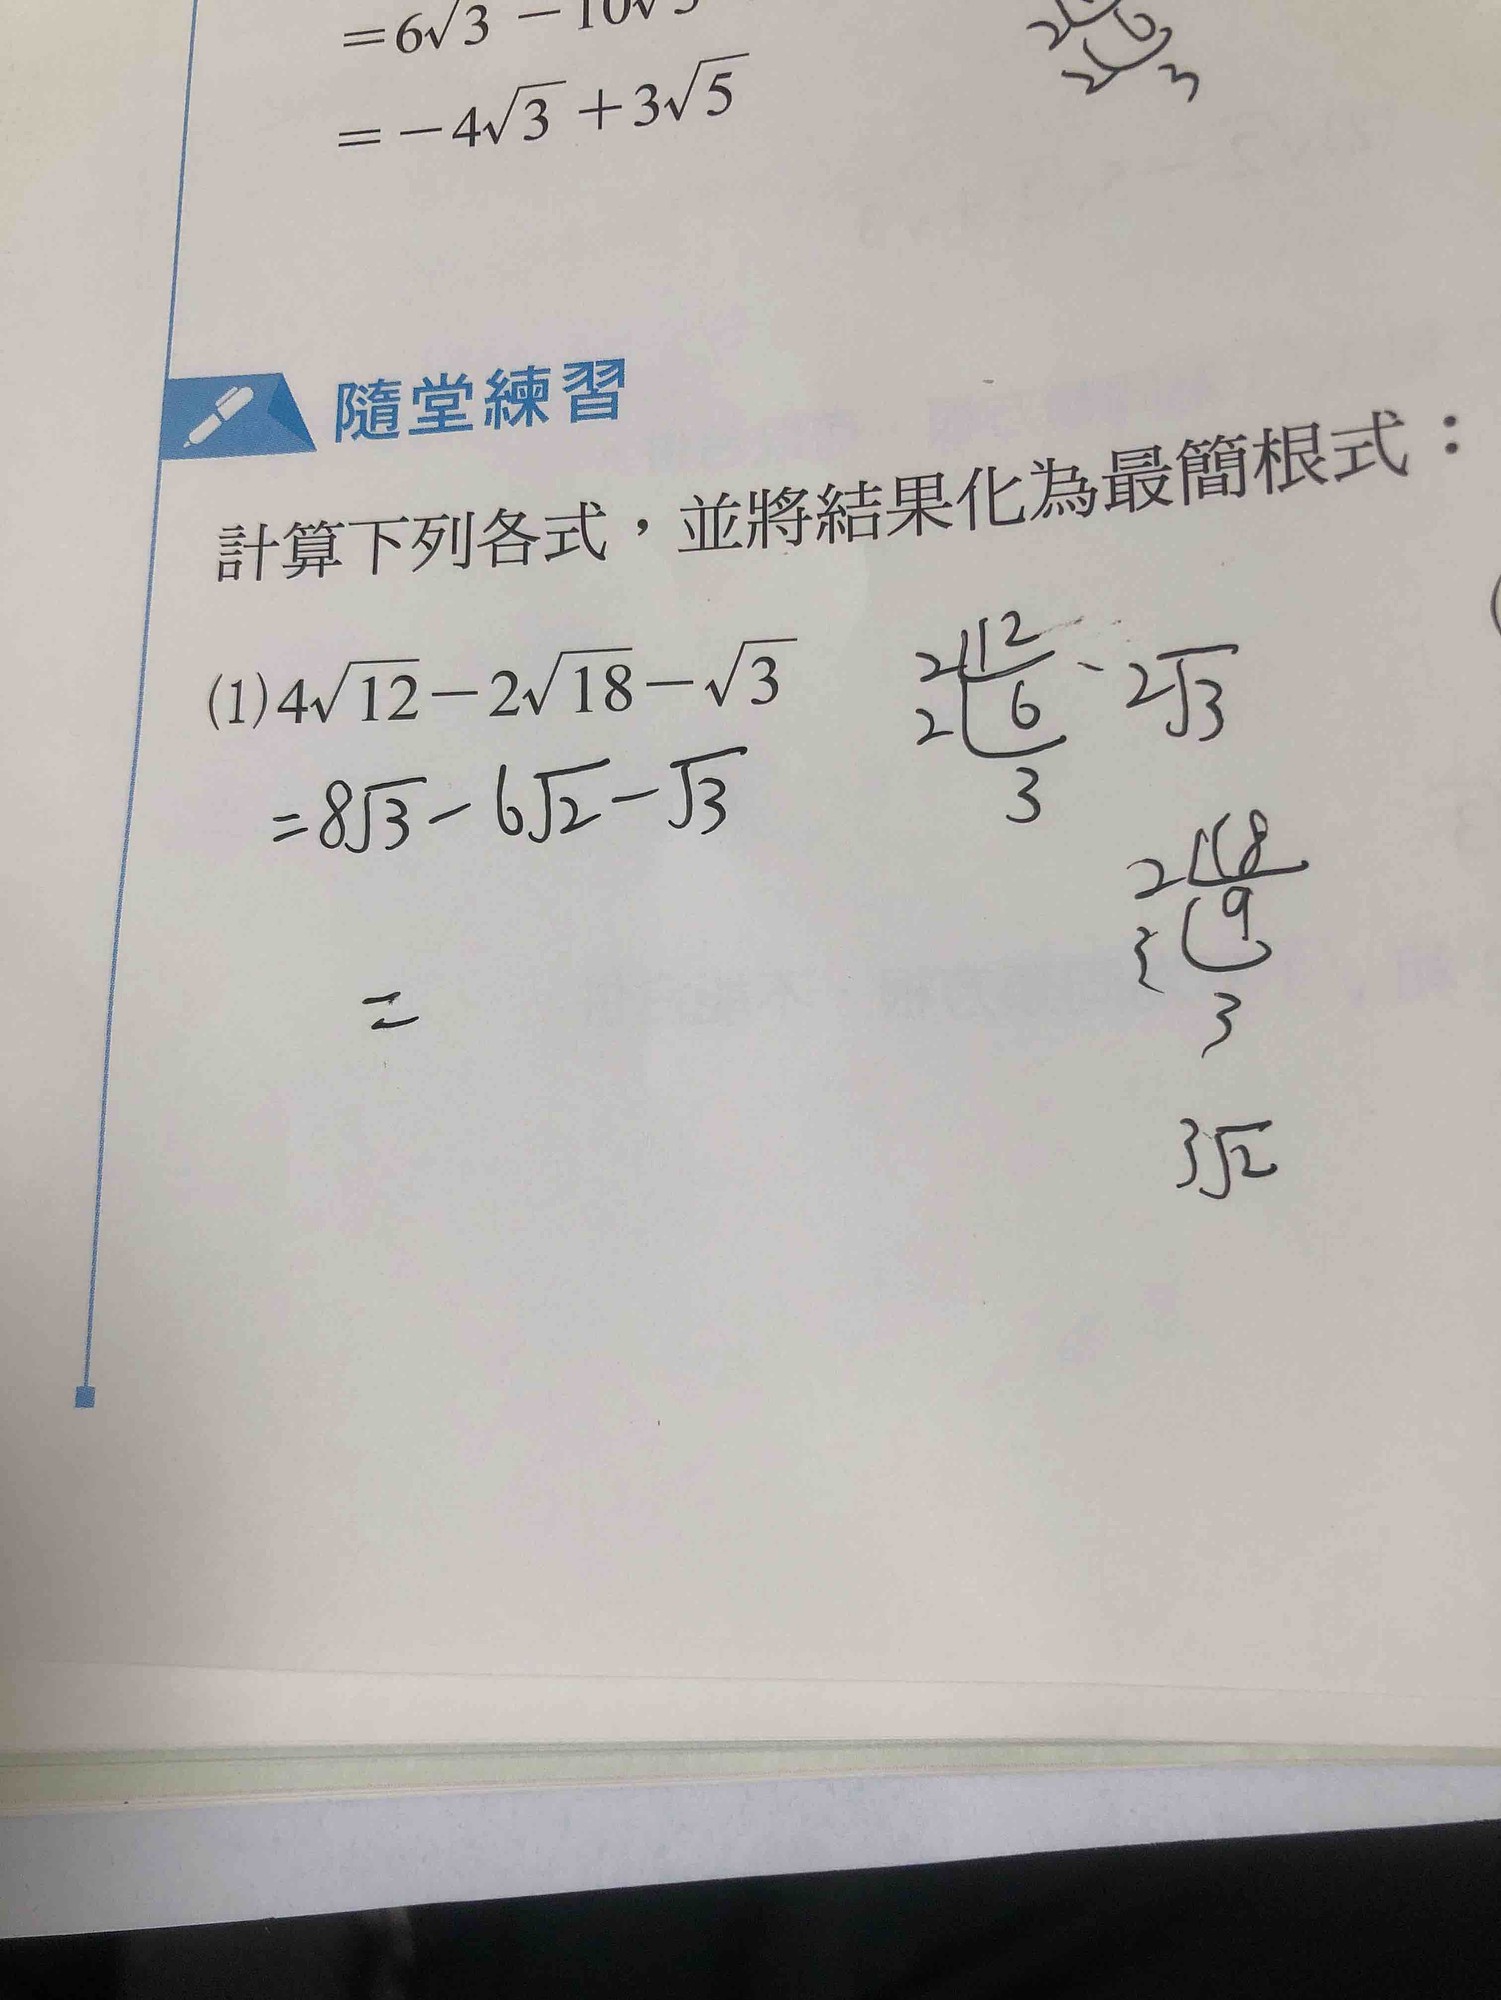 =6√3 −10√3
=−4√3 +3√5
2 6
2 3
隨堂練習
計算下列各式，並將結果化為最簡根式：
(1) 4√12 −2√18 −√3
=8√3 − 6√2 − √3
=
2 12
2 6
3
2√3
2 18
3 9
3
3√2